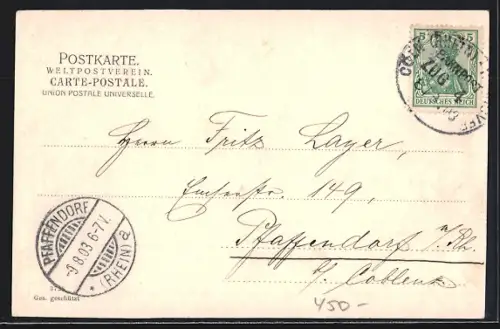 POSTKARTE.
WELTPOSTVEREIN.
CARTE-POSTALE.
UNION POSTALE UNIVERSELLE.
5 5
DEUTSCHES REICH
BAHNPOST
ZUG
Herrn Fritz Layer,
Emserstr. 149,
Pfaffendorf a. Rh.
b/ Coblenz
PFAFFENDORF
-9.8.03.6-7V.
* (RHEIN) a
Ges. geschützt
450-